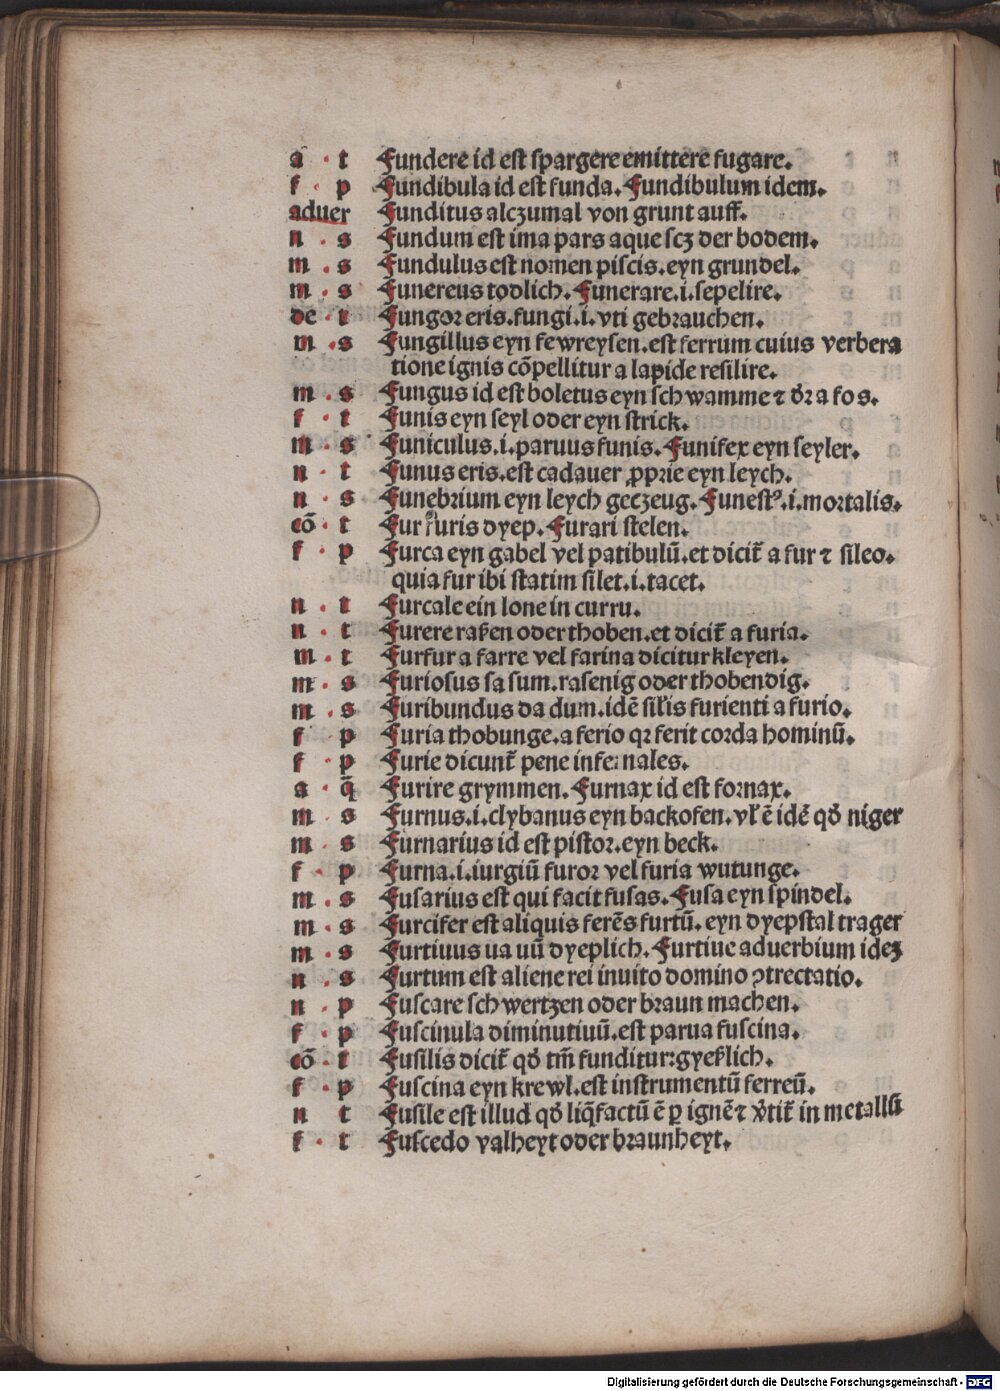 a · t Fundere id est spargere emittere fugare.
f · p Fundibula id est funda. Fundibulum idem.
aduer Funditus alczumal von grunt auff.
n · s Fundum est ima pars aque scz der bodem.
m · s Fundulus est nomen piscis. eyn grundel.
m · s Funereus todlich. Funerare .i. sepelire.
de · t Fungor eris. fungi .i. vti gebrauchen.
m · s Fungillus eyn fewreysen. est ferrum cuius verbera
tione ignis cõpellitur a lapide resilire.
m · s Fungus id est boletus eyn schwamme ⁊ dr̃ a fos.
f · t Funis eyn seyl oder eyn strick.
m · s Funiculus .i. paruus funis. Funifex eyn seyler.
n · t Funus eris. est cadauer ꝓprie eyn leych.
n · s Funebrium eyn leych geczeug. Funestꝰ .i. mortalis.
cõ · t Fur furis dyep. Furari stelen.
f · p Furca eyn gabel vel patibulũ. et dicit̃ a fur ⁊ sileo.
quia fur ibi statim silet .i. tacet.
n · t Furcale ein lone in curru.
n · t Furere rasen oder thoben. et dicit̃ a furia.
m · t Furfur a farre vel farina dicitur kleyen.
m · s Furiosus sa sum. rasenig oder thobendig.
m · s Furibundus da dum. idẽ silis furienti a furio.
f · p Furia thobunge. a ferio qr ferit corda hominũ.
f · p Furie dicunt̃ pene infernales.
a · q̃ Furire grymmen. Furnax id est fornax.
m · s Furnus .i. clybanus eyn backofen. vl ẽ idẽ qđ niger
m · s Furnarius id est pistor. eyn beck.
f · p Furna .i. iurgiũ furor vel furia wutunge.
m · s Fusarius est qui facit fusas. Fusa eyn spindel.
m · s Furcifer est aliquis ferẽs furtũ. eyn dyepstal trager
m · s Furtiuus ua uũ dyeplich. Furtiue aduerbium idez
n · s Furtum est aliene rei inuito domino ꝯtrectatio.
n · p Fuscare schwertzen oder braun machen.
f · p Fuscinula diminutiuũ. est parua fuscina.
cõ · t Fusilis dicit̃ qđ tm̃ funditur: gyeslich.
f · p Fuscina eyn krewl. est instrumentũ ferreũ.
n t Fusile est illud qđ liq̃factũ ẽ ꝑ ignẽ ⁊ v̾tit̃ in metallũ
f · t Fuscedo valheyt oder braunheyt.
Digitalisierung gefördert durch die Deutsche Forschungsgemeinschaft - DFG